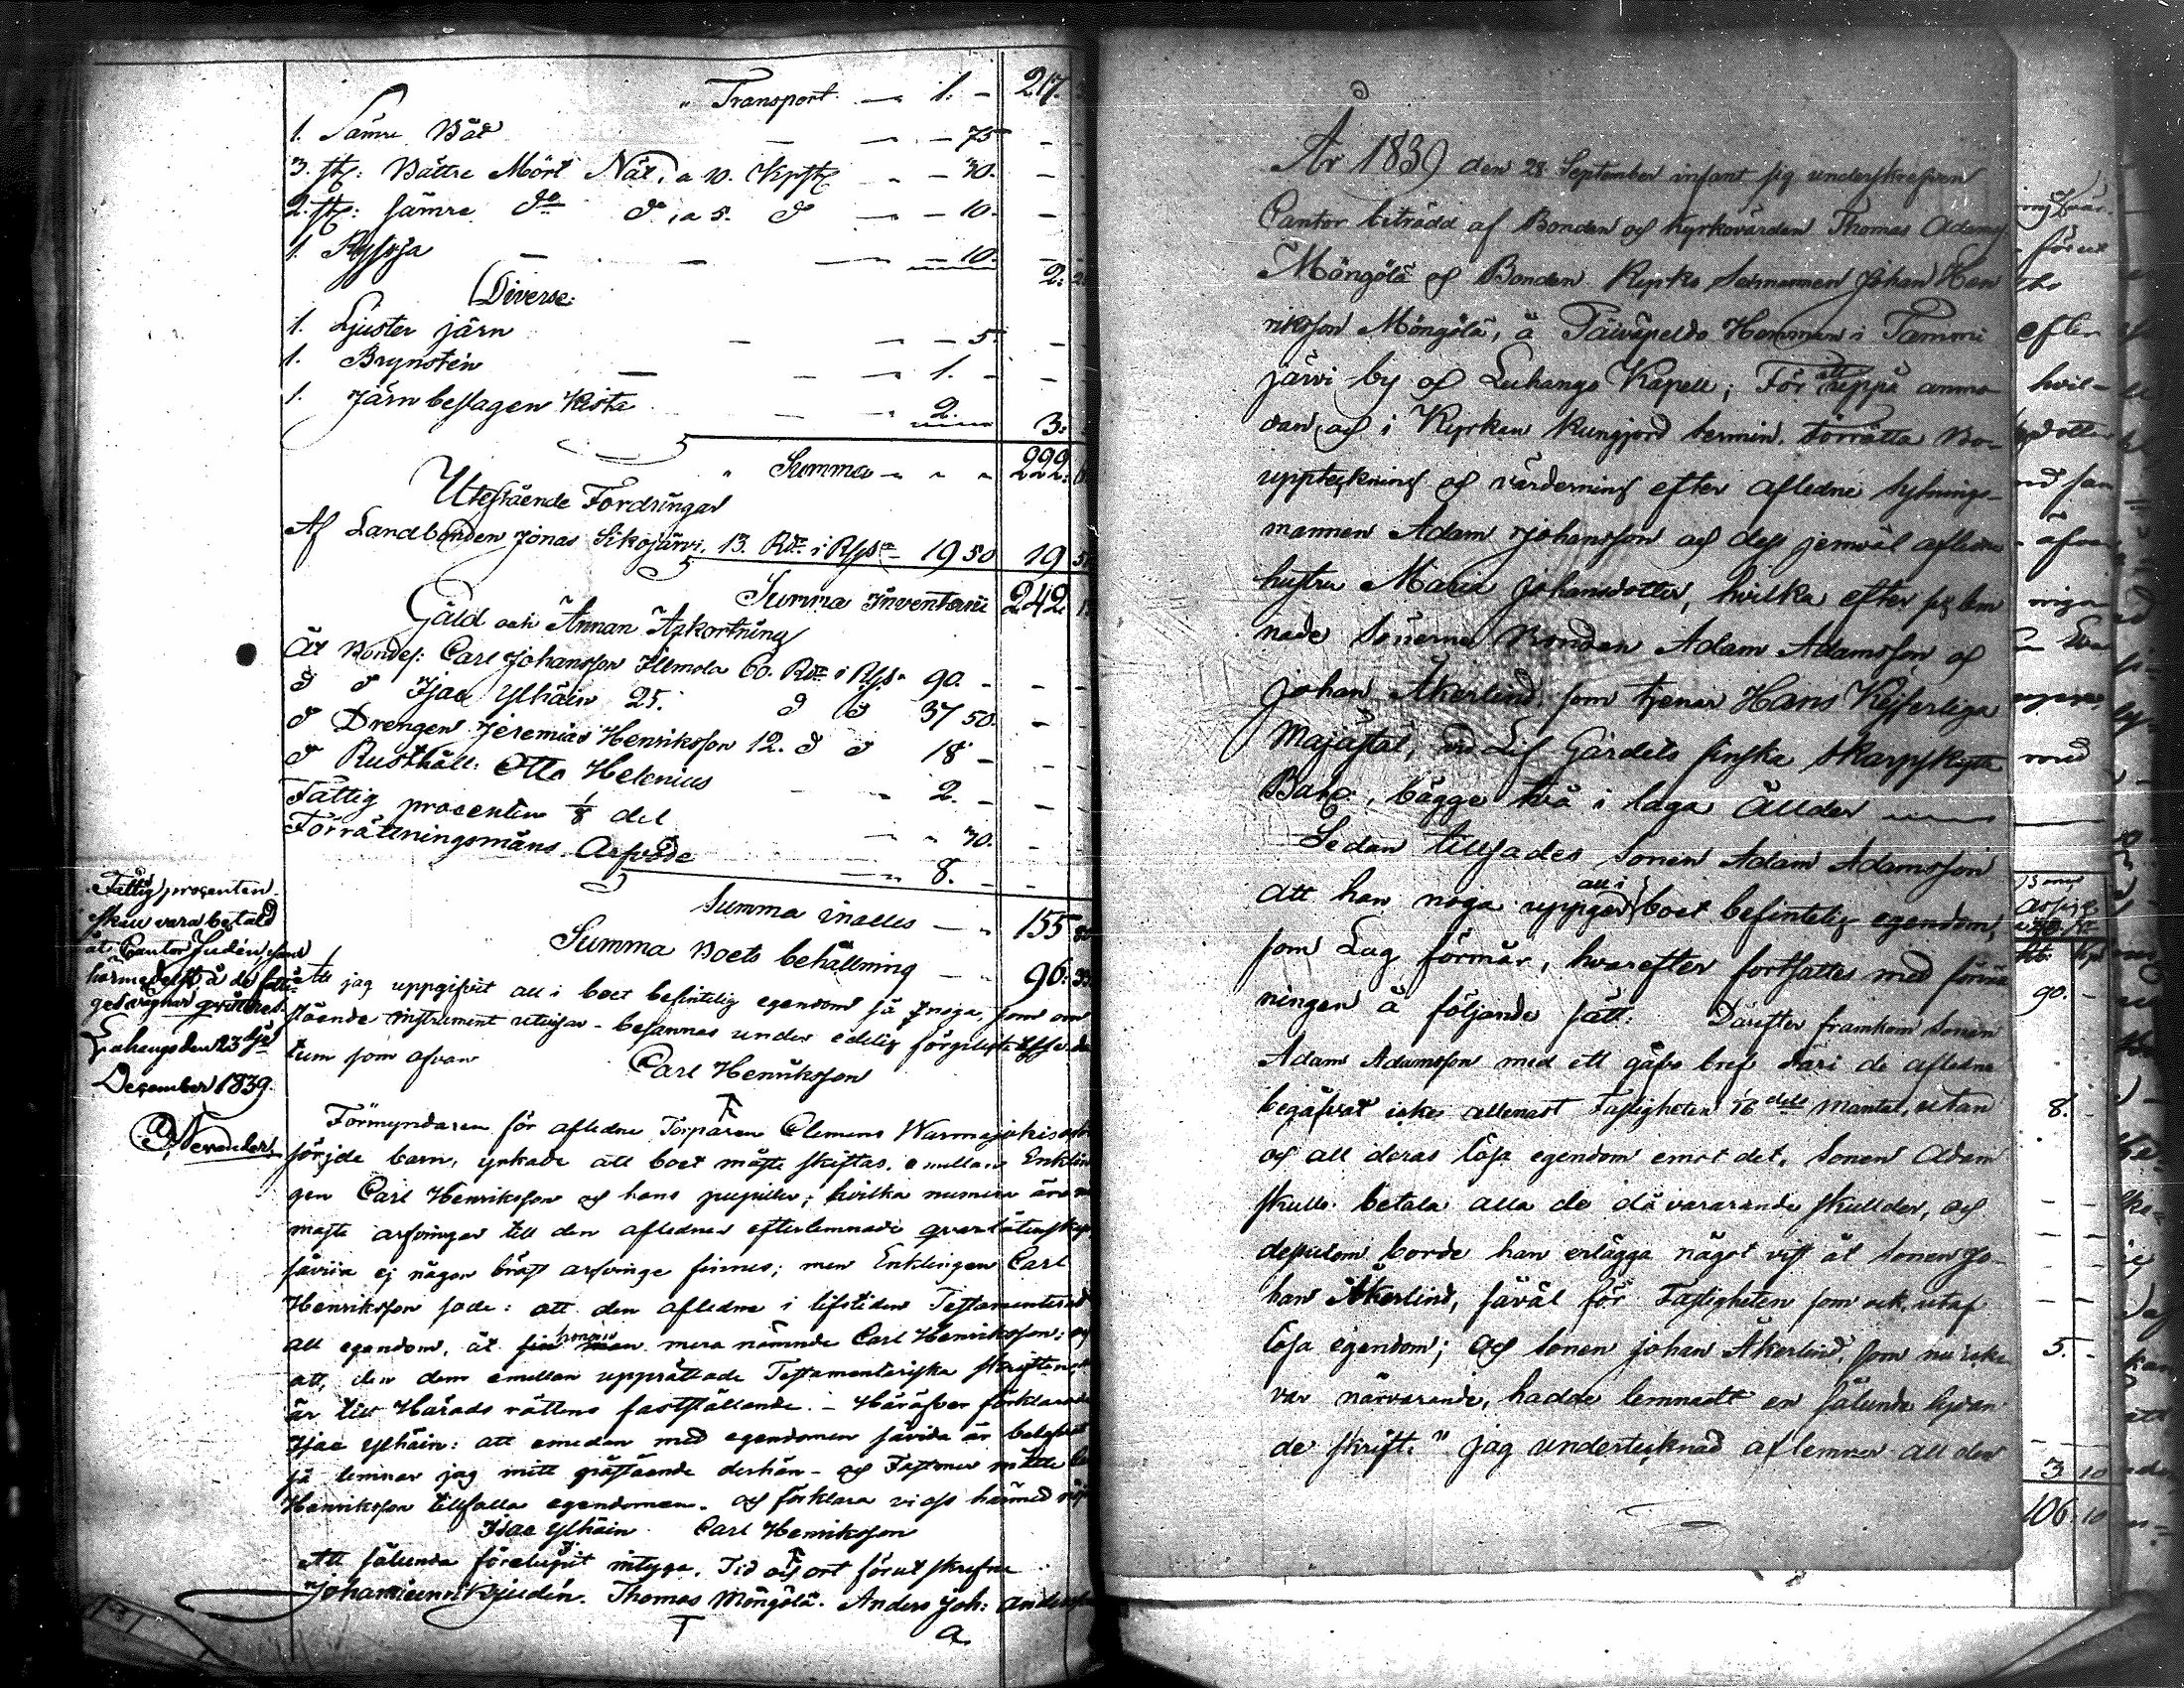 Transport — 1. — 217.
1. Sämre Båt — — 75 — —
3. st: Bättre Mört Nät, a 10. Kpstk — 30. —
2. st: sämre do do, a 5. do — — 10. —
1. Ryssja — — — 10. —
2:
Diverse:
1. Ljuster järn — — 5. — —
1. Brynsten — — — 1. — —
1. Järn beslagen Kista — — 2.
3:
Summa — " " 222:
Utestående Fordringar
Af Landbonden Jonas Sikojärvi, 13. Rdr i Rgs 19 50 19 50
Summa Inventarii 242
Gäld och Annan Afkortning
Åt Bondes: Carl Johansson Ilmola 60. Rdr i Rgs. 90. — — —
d d Isac Ylhäin 25. d d 37 50. —
d Drengen Jeremias Henriksson 12. d d 18 — — —
d Rusthåll: Otto Helenius — " 2. — — —
Fattig procenten 1/8 del — " 30. —
Förrättningsmäns Arfvode — " 8. — —
Summa inalles — " 155
Summa Boets behållning — — 96:
Fattig procenten
skall vara betald
åt Cantor Judén,
de fatti-
gas vägnar
Luhango den 23dje
December 1839.
Att jag uppgifvit all i boet befintelig egendom så noga, som om
stående instrument utvisar — besannas under edelig förpligtelse.
tum som ofvan
Carl Henriksson
Förmyndaren för afledne Torparen Clemens Warmajokis
sörjde barn, yrkade att boet måste skiftas, emellan Enklin
gen Carl Henriksson och hans pupiller; hvilka numera äro
maste arfvingar till den aflednes efterlemnade qvarlåtenskap
såvida ej någon bröst arfvinge finnes; men Enklingen Carl
Henriksson sade: att den aflednne i lifstiden Testamenterad
all egendom, åt sin man mera nämnde Carl Henriksson; och
att, den dem emellan upprättade Testamentariska skriften,
är till Härads rättens fastställande. — Häröfver förklarade
Isac Ylhäin: att emedan med egendomen såvida är
så lemnar jag mitt påstående derhän — och
Henriksson tillfalla egendomen. och förklara vi oss härmed nöjde
Isac Ylhäin Carl Henriksson
Att sålunda förelupit intyga. Tid och ort förut skrefne
Johan Judén. Thomas Möngölä. Anders Joh: Andersson
T a
År 1839 den 28 September infant sig underskrefven
Cantor biträdd af Bonden och Kyrkovärden Thomas Adams
Möngölä och Bonden Kyrko Sexmannen Johan Hen
riksson Möngölä, å Päiväpeldo Hemman i Tammi
järvi by och Luhango Kapell; För att uppå anmo
dan och i Kyrkan kungjord termin. förrätta Bo-
uppteckning och värdering efter aflednne Sytnings-
mannen Adam Johansson och dess jemväl aflednne
hustru Maria Johansdotter, hvilka efter sig lem
nade Sönerna Bonden Adam Adamsson och
Johan Åkerlind, som tjenar Hans Kejserliga
Majästät, vid Lif Gardets finska skarpskytte
Bat:, bägge två i laga Ållder
Sedan tillsades Sonen Adam Adamsson
att han noga uppger all i boet befintelig egendom,
som Lag förmår, hvarefter fortsattes med förrätt
ningen å följande sätt: Därefter framkom Sonen
Adam Adamsson med ett gåfvo bref däri de aflednne
begåfvat icke allenast Fastigheten 1/6 dels Mantal, utan
och all deras lösa egendom emot det, Sonen Adam
skulle betala alla de då vararande skullder, och
dessutom borde han erlägga något visst åt Sonen Jo-
han Åkerlind, såväl för Fastigheten som ock utaf
lösa egendom; Och Sonen Johan Åkerlind, som nu icke
var närvarande, hadde lemnadt en sålunda lydan
de skrift. "Jag undertecknad aflemnar all den
förut
efter
hvil-
90. —
8. —
5. —
3 10
106. 10